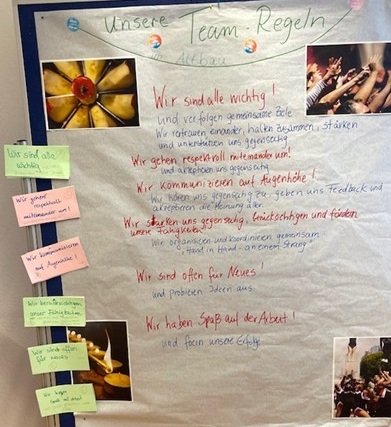 Unsere Team-Regeln
Altbau
Wir sind alle wichtig!
und verfolgen gemeinsame Ziele
Wir vertrauen einander, halten zusammen, stärken
und unterstützen uns gegenseitig
Wir gehen respektvoll miteinander um!
und akzeptieren uns gegenseitig
Wir kommunizieren auf Augenhöhe!
Wir hören uns gegenseitig zu, geben uns Feedback und
akzeptieren die Meinung aller
Wir stärken uns gegenseitig, berücksichtigen und fördern
unsere Fähigkeiten
Wir organisieren und koordinieren gemeinsam
"Hand in Hand - an einem Strang"
Wir sind offen für Neues
und probieren Ideen aus
Wir haben Spaß auf der Arbeit!
und feiern unsere Erfolge
Wir sind alle
wichtig
Wir gehen
respektvoll
miteinander um!
Wir kommunizieren
auf Augenhöhe!
Wir berücksichtigen
unsere Fähigkeiten
Wir sind offen
für neues
Wir haben